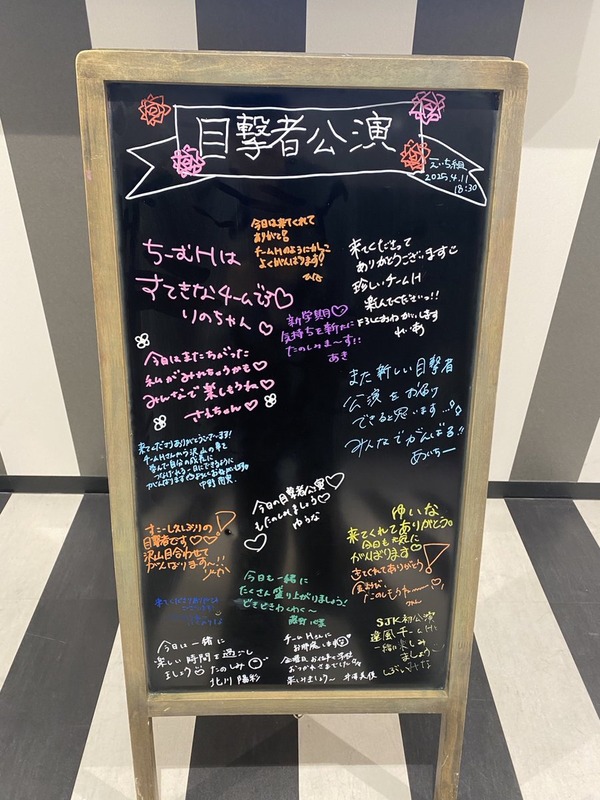 目撃者公演
えいち組
2025.4.11
18:30
今日は来てくれて
ありがとう!
チームHのようにかっこ
よくがんばります!
ちーむHは
すてきなチームです♡
りのちゃん♡
来てくださって
ありがとうございます
珍しいチームH
楽んでくださいっ!!
よろしくおねがいします
新学期♡
気持ちを新たに
たのしみま〜す!!
あき
今日はまたちがった
私がみれちゃうかも♡
みんなで楽しもうね♡
さえちゃん♡
また新しい目撃者
公演をお届け
できると思います...
みんなでがんばる!!
めいちー
来てくださりありがとうございます!
今日の目撃者公演♡
もたのしみましょう♡
ゆうな
すご〜く久しぶりの
目撃者です♡♡
沢山目合わせて
がんばります〜!!
ゆいな
来てくれてありがとう。
今日も元気に
がんばります♡
きてくれてありがとう
たのしもうねー♡
今日も一緒に
たくさん盛り上がりましょう!
どきどきわくわく〜
今日は一緒に
楽しい時間を過ごし
ましょう たのしみ
北川 陽彩
チームHさんに
お邪魔します
金曜日お仕事や学校
おつかれさまでした
楽しみましょう〜
SJK初公演
違風チームHと
一緒に楽しみ
ましょう〜